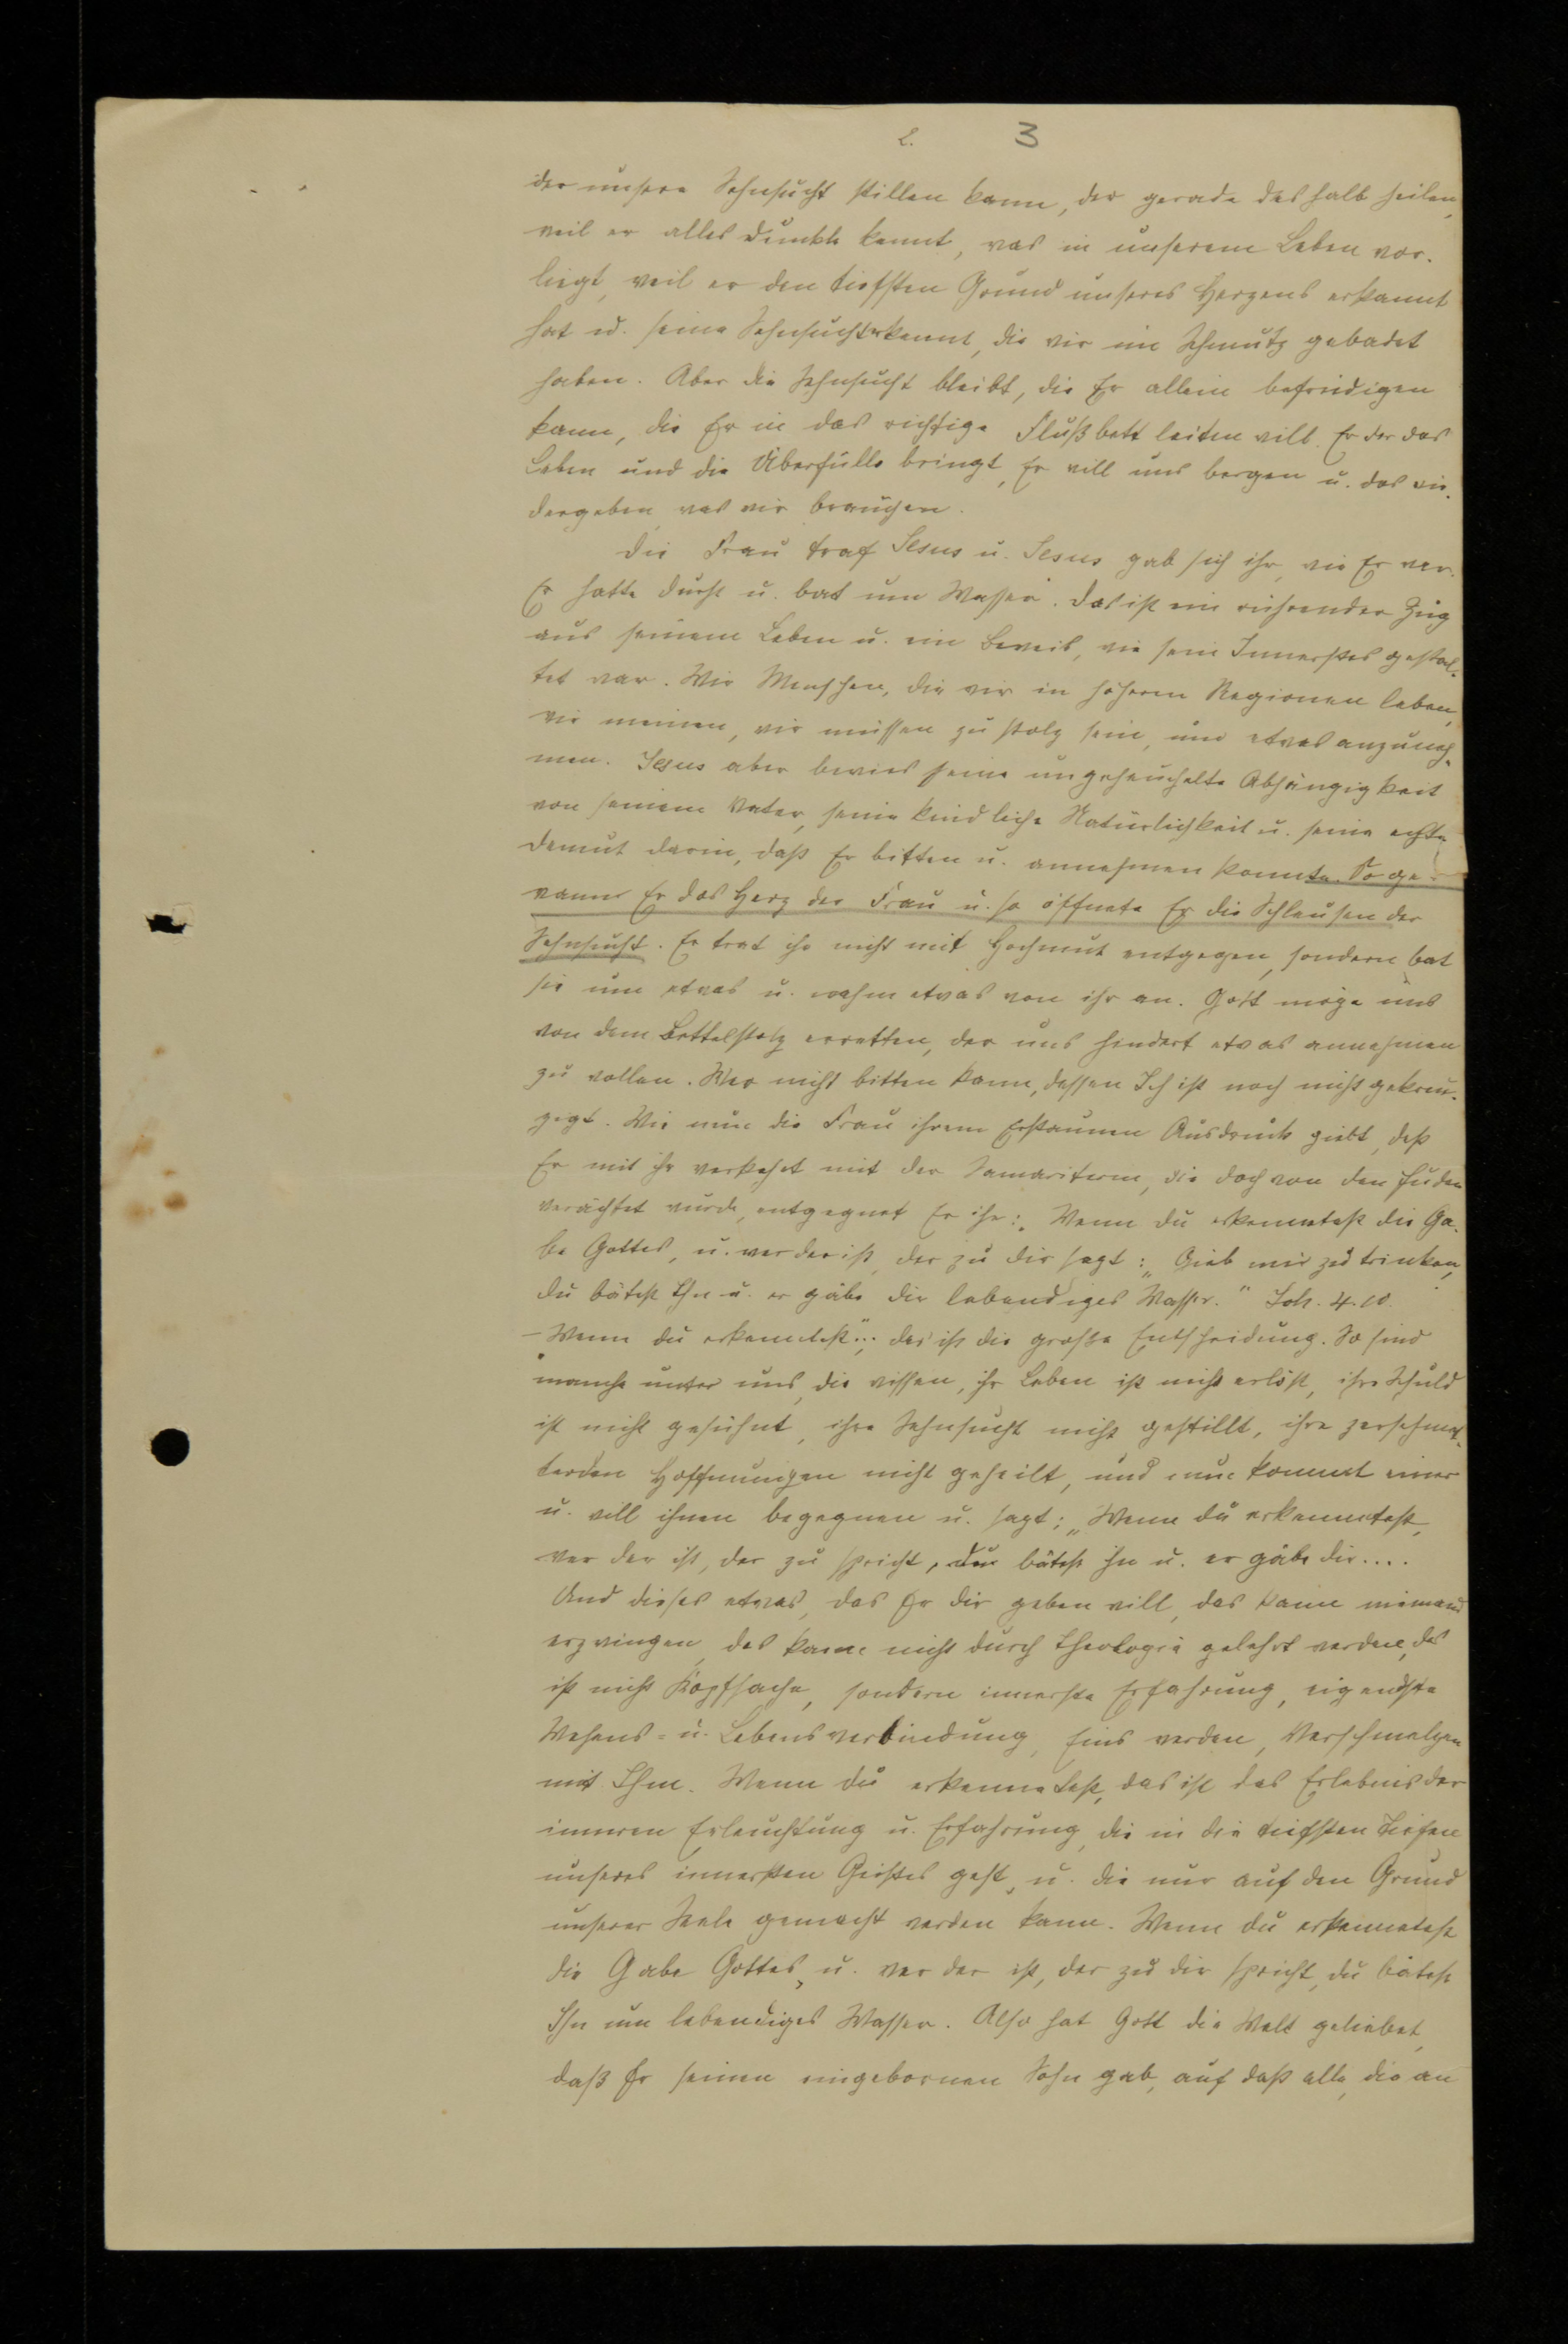 2. 3
der unsere Sehnsucht stillen kann, der gerade deshalb heilen,
weil er alles Dunkle kennt, was in unserem Leben vor-
liegt, weil er den tiefsten Grund unseres Herzens erkannt
hat u. seine Sehnsucht erkennt, die wir im Schmutz gebadet
haben. Aber die Sehnsucht bleibt, die Er allein befriedigen
kann, die Er in das richtige Flußbett leiten will. Er der das
Leben und die Überfülle bringt, Er will uns bergen u. das wie-
dergeben was wir brauchen.
Die Frau traf Jesus u. Jesus gab sich ihr, wie Er war.
Er hatte Durst u. bat um Wasser. Das ist ein rührender Zug
aus seinem Leben u. ein Beweis, wie sein Innerstes gestal-
tet war. Wir Menschen, die wir in höheren Regionen leben,
wir meinen, wir müssen zu stolz sein, um etwas anzuneh-
men. Jesus aber bewies seine ungeheuchelte Abhängigkeit
von seinem Vater, seine kindliche Natürlichkeit u. seine echte
Demut darin, daß Er bitten u. annehmen konnte. So ge-
wann Er das Herz der Frau u. so öffnete Er die Schleusen der
Sehnsucht. Er trat ihr nicht mit Hochmut entgegen, sondern bat
sie um etwas u. nahm etwas von ihr an. Gott möge uns
von dem Bettelstolz erretten, der uns hindert etwas annehmen
zu wollen. Wer nicht bitten kann, dessen Ich ist noch nicht gekreu-
zigt. Wie nun die Frau ihrem Erstaunen Ausdruck giebt, daß
Er mit ihr verkehrt mit der Samariterin, die doch von den Juden
verachtet wurde, entgegnet Er ihr: „Wenn du erkenntest die Ga-
be Gottes, u. wer der ist, der zu dir sagt: „Gieb mir zu trinken,
du bätest Ihn u. er gäbe dir lebendiges Wasser." Joh. 4.10.
- Wenn du erkenntest"... das ist die große Entscheidung. So sind
manche unter uns, die wissen, ihr Leben ist nicht erlöst, ihre Schuld
ist nicht gesühnt, ihre Sehnsucht nicht gestillt, ihre zerschmet-
terden Hoffnungen nicht geheilt, und nun kommt einer
u. will ihnen begegnen u. sagt: „Wenn du erkenntest,
wer der ist, der zu spricht, du bätest ihn u. er gäbe dir....
Und dieses etwas, das Er dir geben will, das kann niemand
erzwingen, das kann nicht durch Theologie gelehrt werden, das
ist nicht Kopfsache, sondern innerste Erfahrung, eigenste
Wesens- u. Lebensverbindung, Eins werden, Verschmelzen
mit Ihm. Wenn du erkenntest, das ist das Erlebnis der
inneren Erleuchtung u. Erfahrung, die in die tiefsten Tiefen
unseres innersten Geistes geht, u. die nur auf den Grund
unserer Seele gemacht werden kann. Wenn du erkenntest
die Gabe Gottes, u. wer der ist, der zu dir spricht, du bätest
Ihn um lebendiges Wasser. Also hat Gott die Welt geliebet,
daß Er seinen eingebornen Sohn gab, auf daß alle, die an